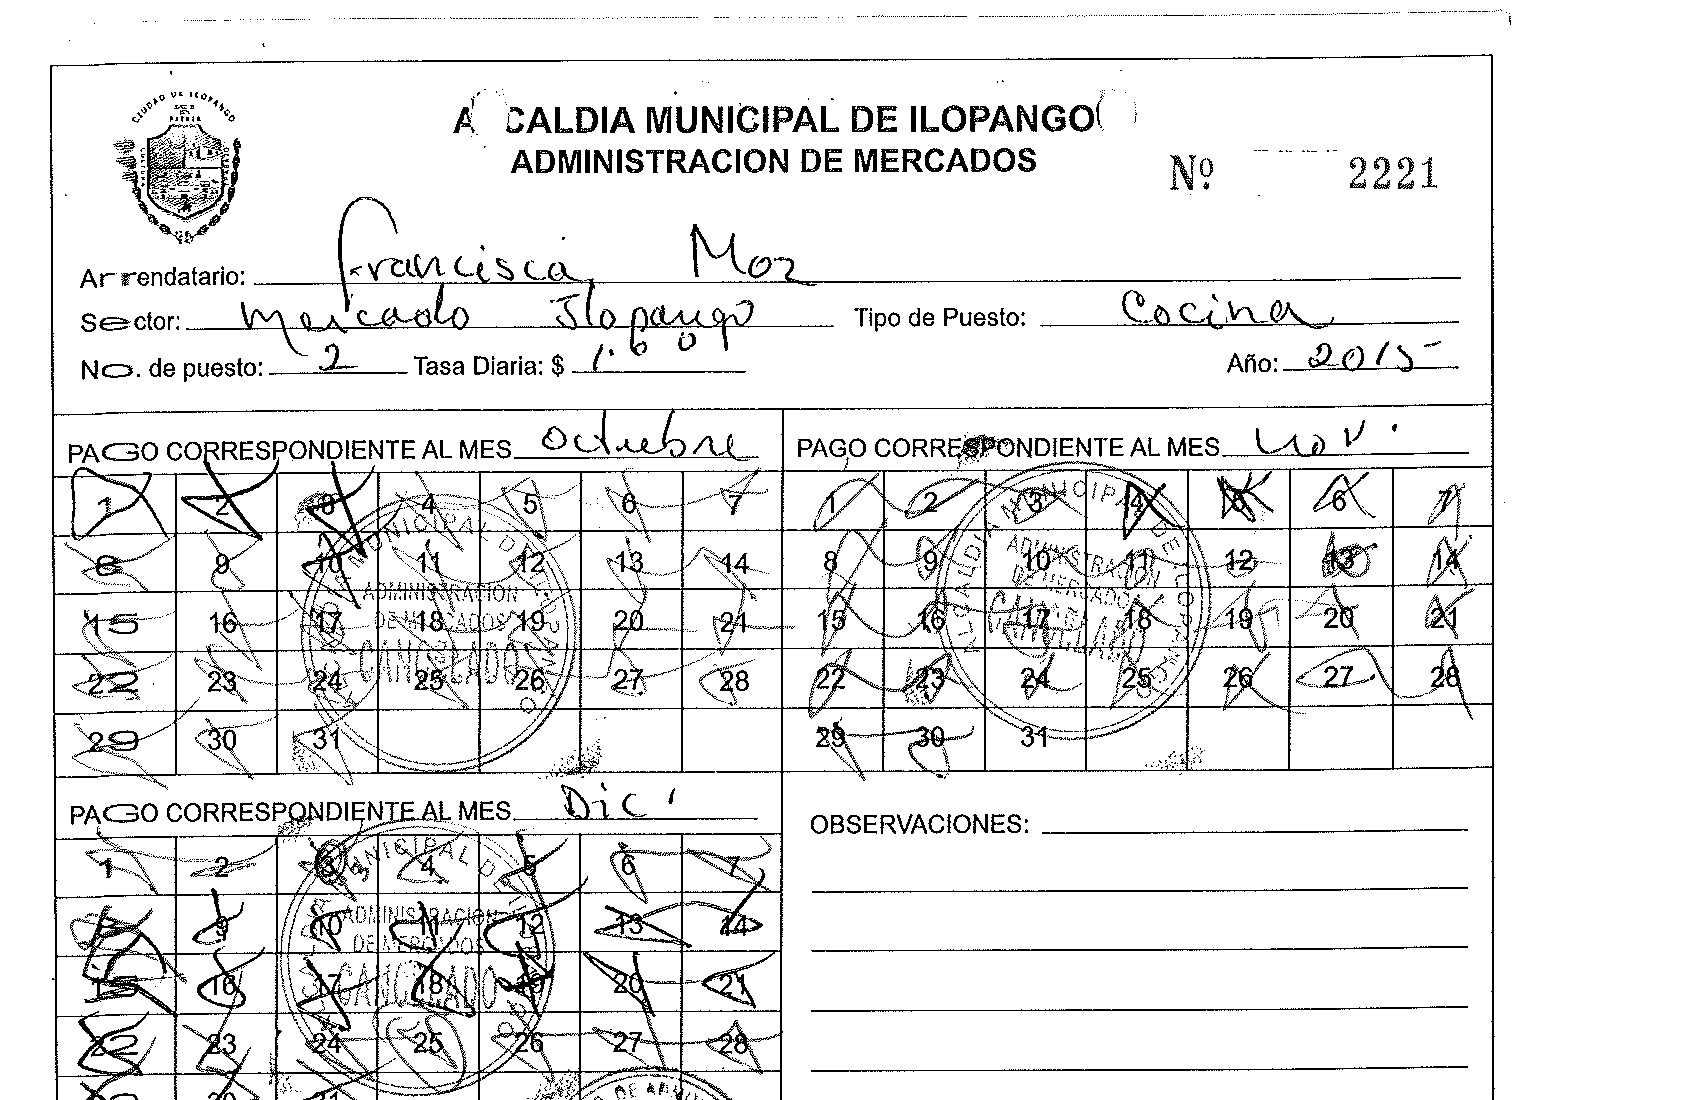 CIUDAD DE ILOPANGO
ALCALDIA MUNICIPAL DE ILOPANGO
ADMINISTRACION DE MERCADOS
Nº 2221
Arrendatario: Francisca Moz
Sector: Mercado Ilopango Tipo de Puesto: Cocina
No. de puesto: 2 Tasa Diaria: $ 1.60 Año: 2015
PAGO CORRESPONDIENTE AL MES Octubre
1 2 3 4 5 6 7
8 9 10 11 12 13 14
15 16 17 18 19 20 21
22 23 24 25 26 27 28
29 30 31
ADMINISTRACION
DE MERCADOS
CANCELADO
PAGO CORRESPONDIENTE AL MES Nov.
1 2 3 4 5 6 7
8 9 10 11 12 13 14
15 16 17 18 19 20 21
22 23 24 25 26 27 28
29 30 31
ALCALDIA MUNICIPAL DE ILOPANGO
ADMINISTRACION
DE MERCADOS
PAGO CORRESPONDIENTE AL MES Dic
1 2 3 4 5 6 7
8 9 10 11 12 13 14
15 16 17 18 19 20 21
22 23 24 25 26 27 28
ADMINISTRACION
DE MERCADOS
CANCELADO
OBSERVACIONES: